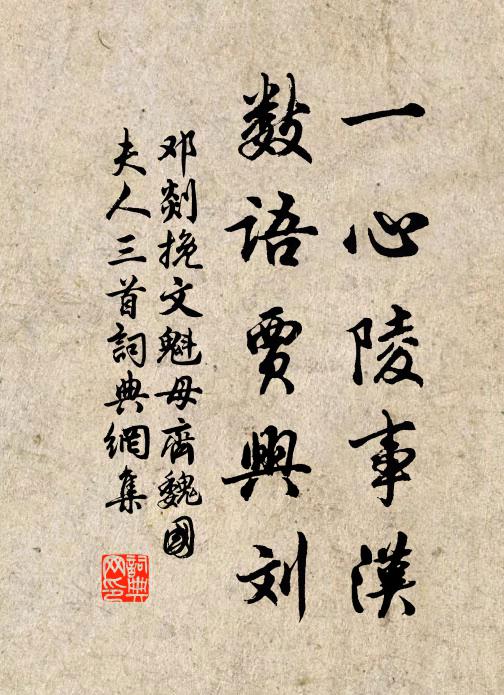 一心陵事漢
數語賈興刘
邓剡挽文魁母齊魏國
夫人三首詞典網集
詞典网印